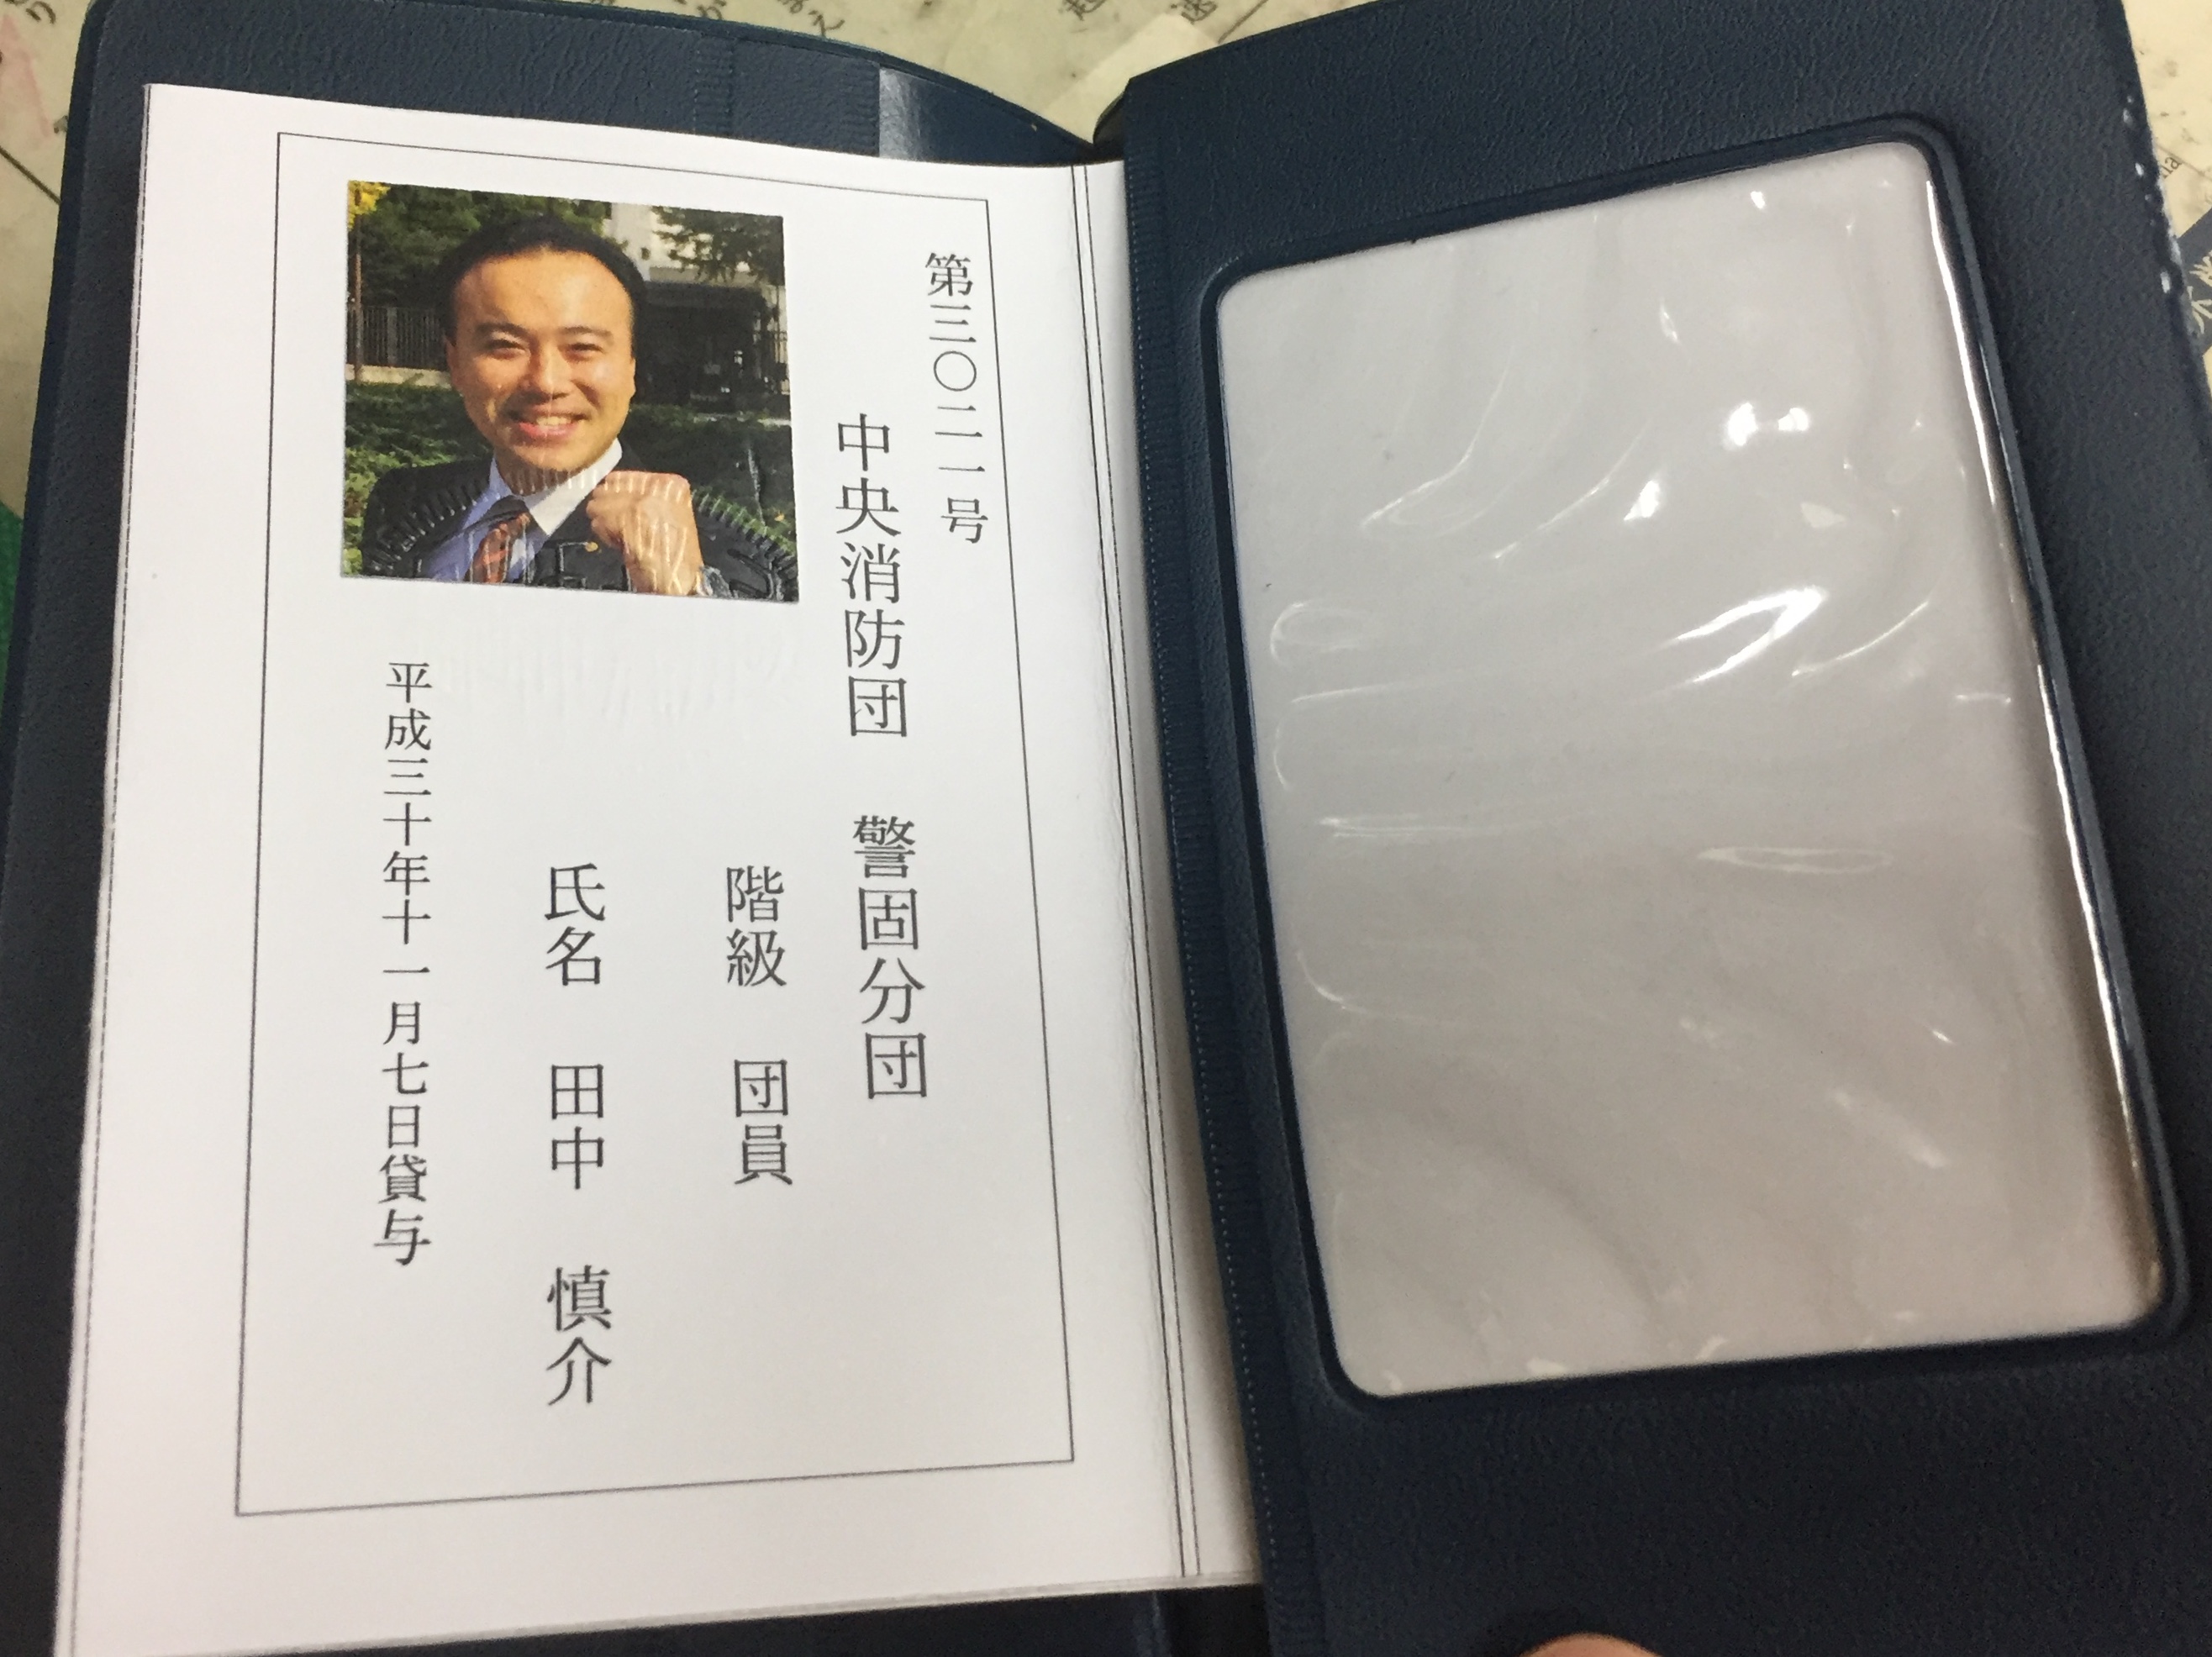 第三〇二一号
中央消防団　警固分団
階級　団員
氏名　田中　慎介
平成三十年十一月七日貸与